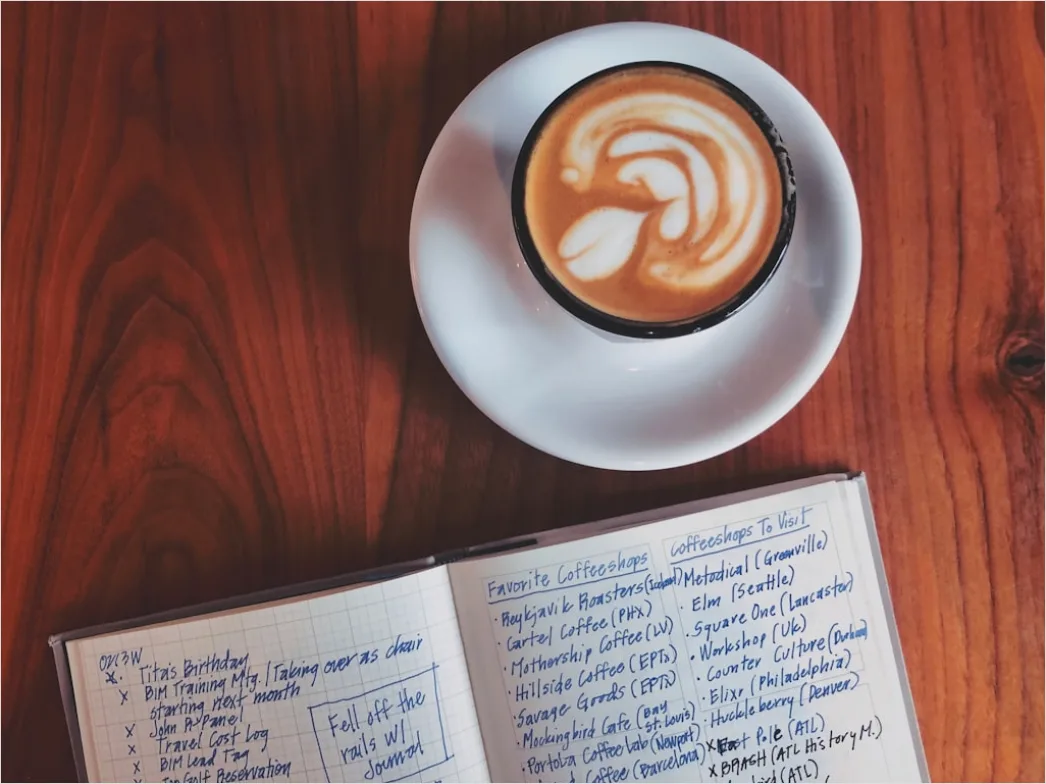 Tita's Birthday
x BIM Training Mtg. | Taking over as chair
starting next month
x Travel Cost Log
x BIM Lead Tag
Golf Reservation
Fell off the
rails w/
Journal
Favorite Coffeeshops
· Reykjavik Roasters (Iceland)
· Cartel Coffee (PHX)
· Mothership Coffee (LV)
· Hillside Coffee (EPTX)
· Savage Goods (EPTX)
· Mockingbird Cafe (Bay
St. Louis)
· Portola Coffee Lab (Newport)
Coffee (Barcelona)
Coffeeshops To Visit
Metodical (Greenville)
· Elm (Seattle)
· Square One (Lancaster)
· Workshop (UK)
· Counter Culture (Durham)
· Elixr (Philadelphia)
· Huckleberry (Denver)
x East Pole (ATL)
x BRASH (ATL History M.)
(ATL)